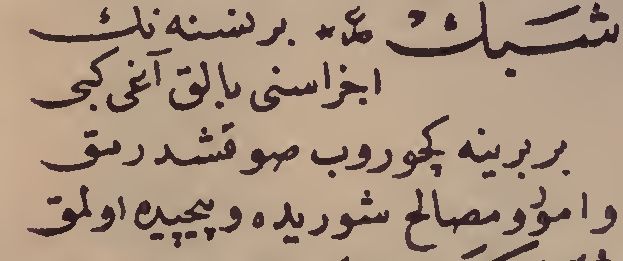 شبك ع * بر نسنه نك
اجزاسنى بالق آغى كبى
بربرينه كچوروب صوقشدرمق
وامور ومصالح شوريده وپيچيده اولمق